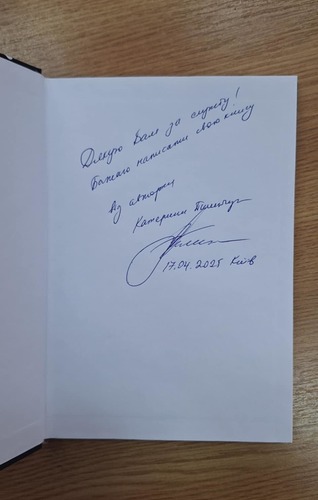 Дякую Вам за службу!
Бажаю написати свою книгу
Від авторки
Катерини
17.04.2025 Київ